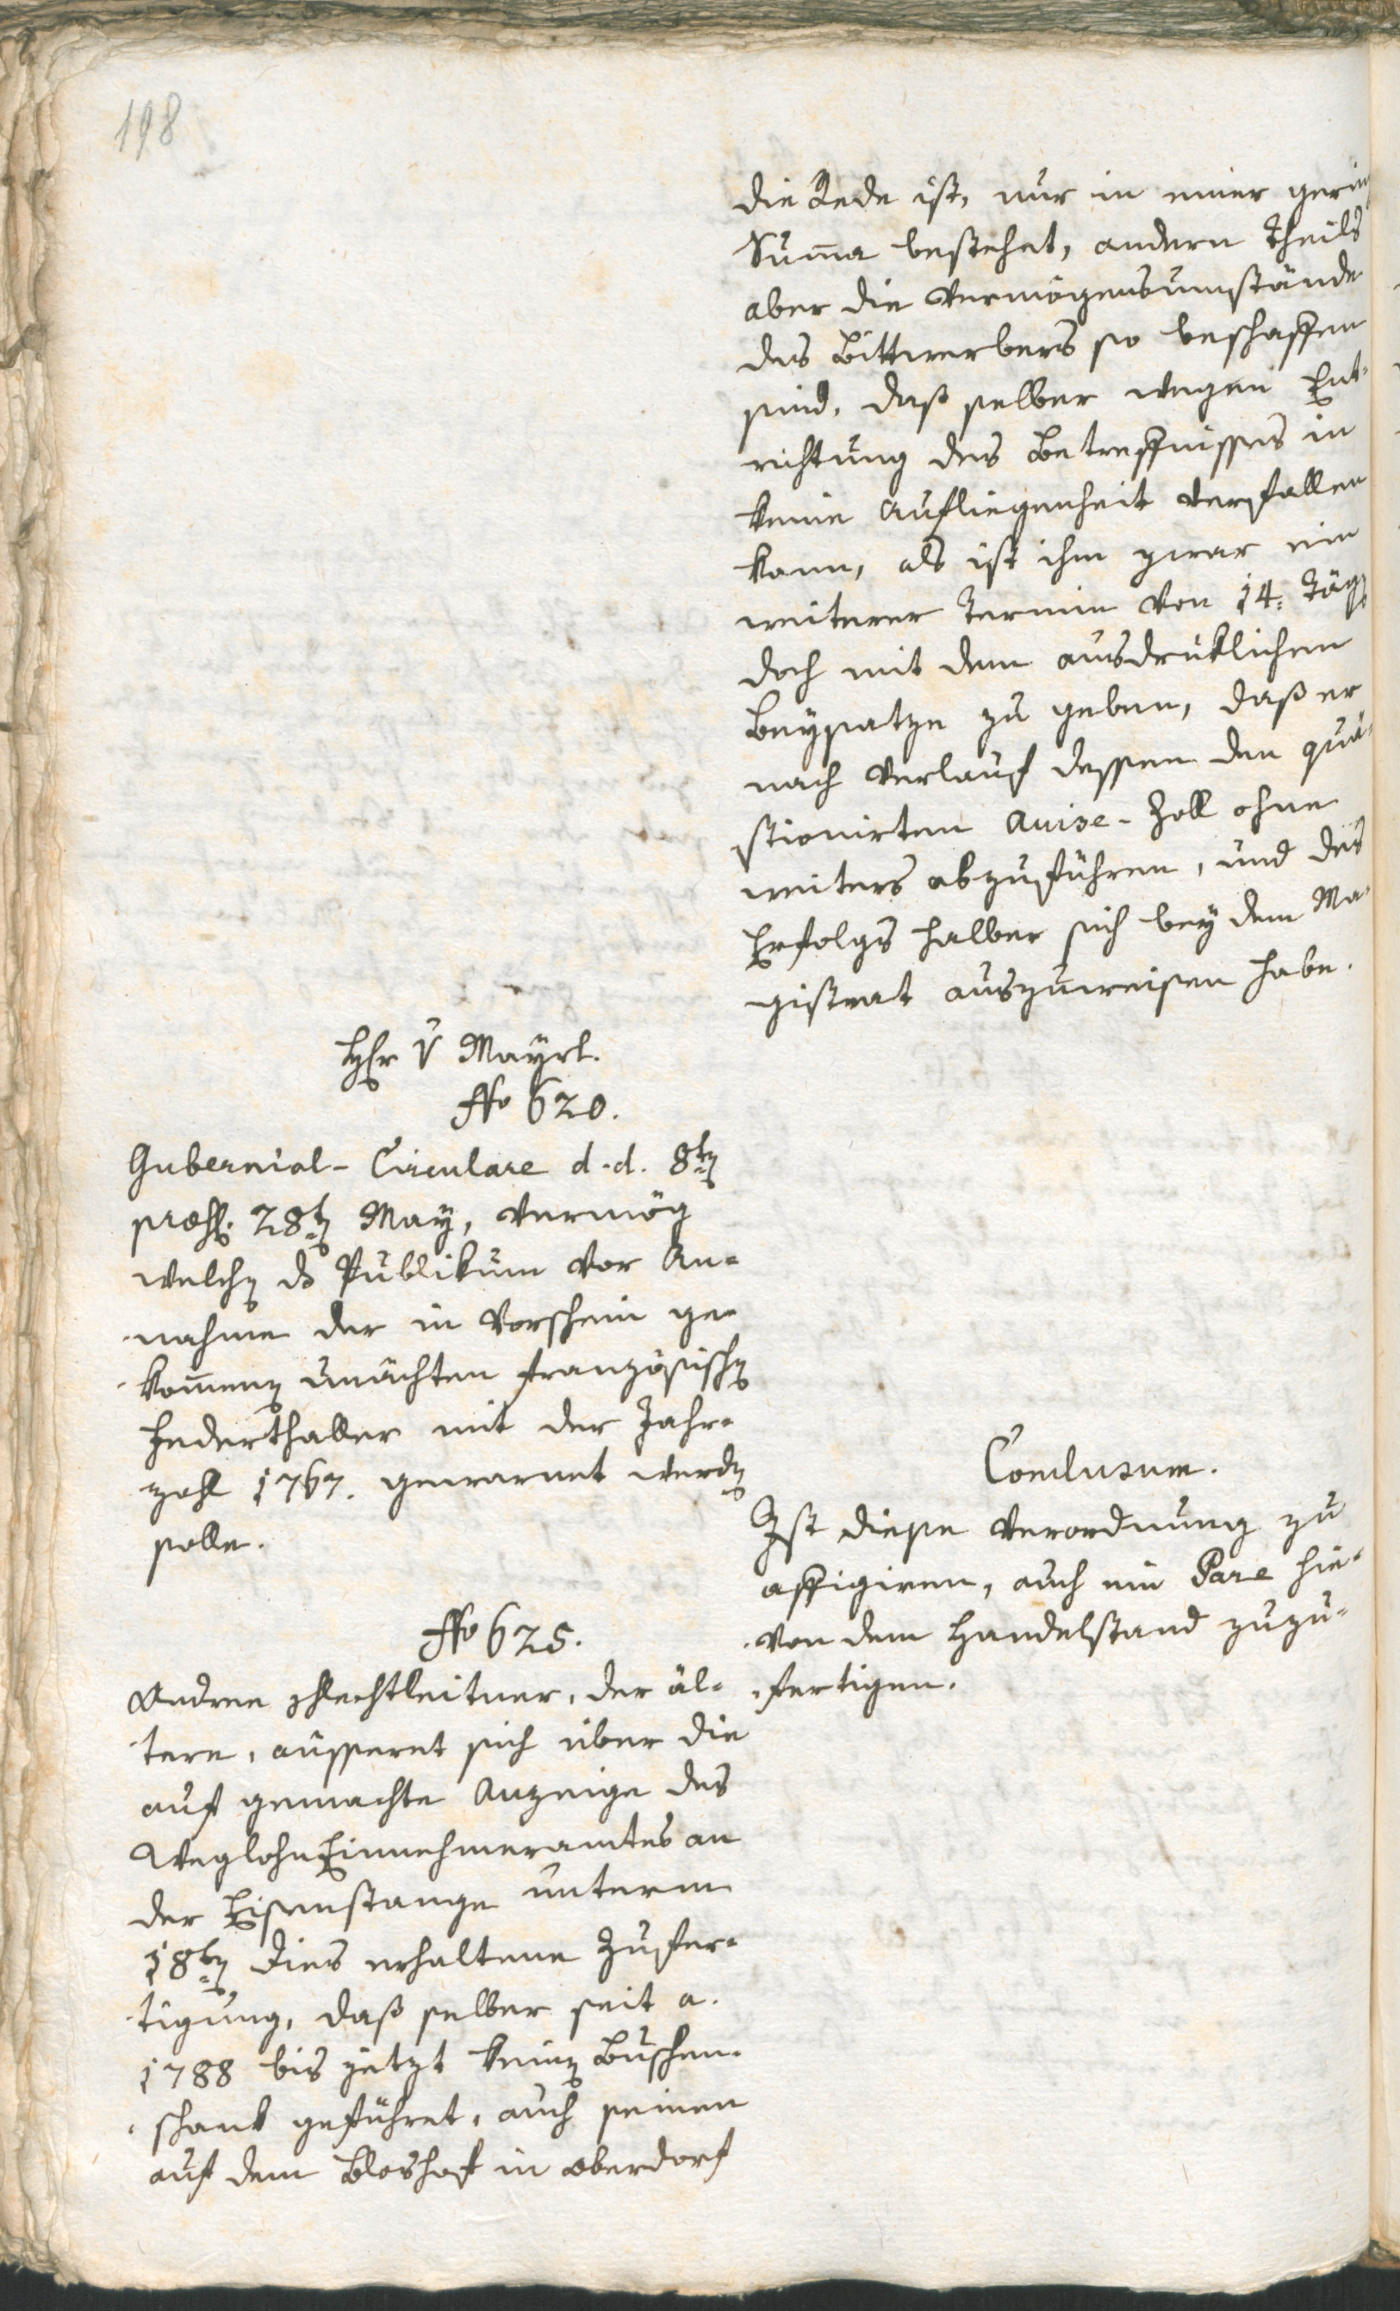 198
die Rede ist, nur in einer gering
Summa bestehet, andern Theils
aber die Vermögensumstände
des Bittwerbers so beschaffen
sind, daß selber wegen Ent-
richtung des Betreffnisses in
keine Aufliegenheit verfallen
kann, als ist ihm zwar ein
weiterer Termin von 14. Täg
doch mit dem ausdrüklichen
Beysatze zu geben, daß er
nach Verlauf dessen den quä-
stionirten Avise-Zoll ohne
weiters abzuführen, und des
Erfolgs halber sich bey dem Ma-
gistrat auszuweisen habe.
Hr v Mayrl.
No 620.
Gubernial-Circulare d.d. 8ten
praes. 28t May, vermög
welchen ds Publikum vor An-
nahme der in Vorschein ge-
kommenen unächten französischen
Federthaller mit der Jahr-
zahl 1767. gewarnet werden
solle.
Conclusum.
Ist diese Verordnung zu
affigiren, auch ein Pare hie-
von dem Handelstand zuzu-
fertigen.
No 625.
Andree Schlechtleitner, der äl-
tere, äusseret sich über die
auf gemachte Anzeige des
Weglohn Einnehmeramtes an
der Eisenstange unterm
18ten dies erhaltene Zufer-
tigung, daß selber seit a.
1788 bis jetzt keinen Buschen-
schank geführet, auch seinen
auf dem Bloshof in Oberdorf